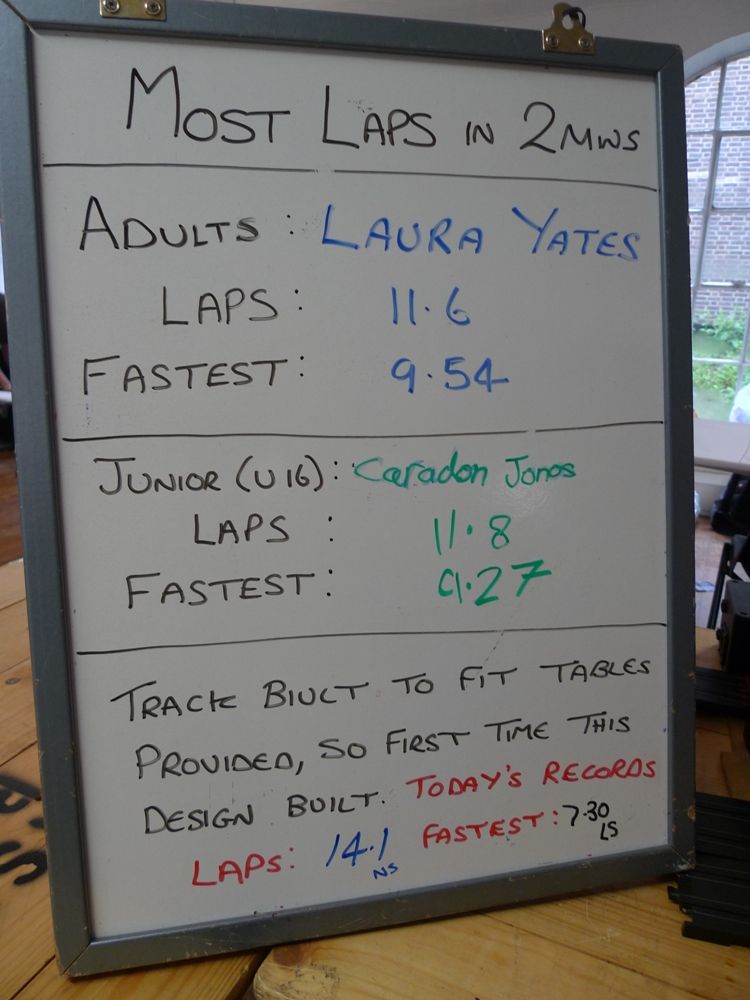 MOST LAPS IN 2MINS
ADULTS: LAURA YATES
LAPS: 11.6
FASTEST: 9.54
JUNIOR (U16): Caradon Jones
LAPS : 11.8
FASTEST: 9.27
TRACK BIULT TO FIT TABLES
PROVIDED, SO FIRST TIME THIS
DESIGN BUILT. TODAY'S RECORDS
LAPS: 14.1 NS FASTEST: 7.30 LS